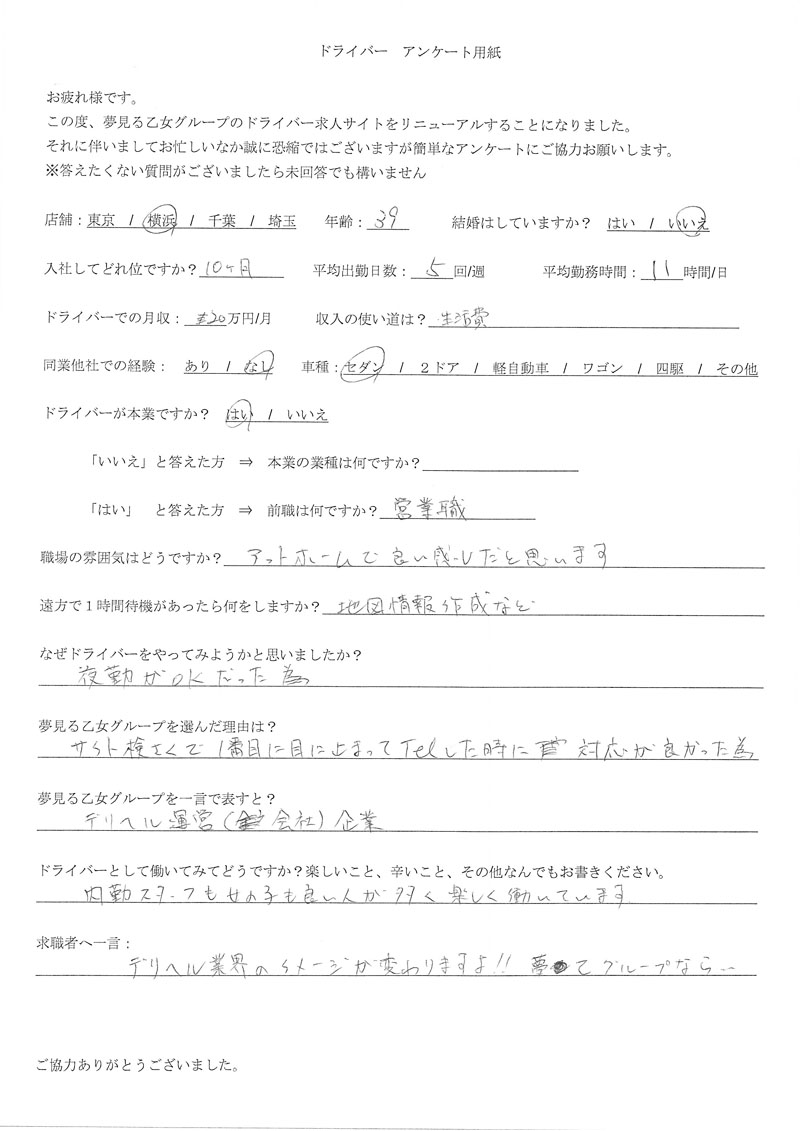 ドライバー　アンケート用紙
お疲れ様です。
この度、夢見る乙女グループのドライバー求人サイトをリニューアルすることになりました。
それに伴いましてお忙しいなか誠に恐縮ではございますが簡単なアンケートにご協力お願いします。
※答えたくない質問がございましたら未回答でも構いません
店舗：東京　/　横浜　/　千葉　/　埼玉　　年齢：39　　結婚はしていますか？　はい　/　いいえ
入社してどれ位ですか？10ヶ月　　平均出勤日数：5回/週　　平均勤務時間：11時間/日
ドライバーでの月収：±20万円/月　　収入の使い道は？生活費
同業他社での経験：　あり　/　なし　　車種：セダン　/　２ドア　/　軽自動車　/　ワゴン　/　四駆　/　その他
ドライバーが本業ですか？　はい　/　いいえ
「いいえ」と答えた方　⇒　本業の業種は何ですか？
「はい」　と答えた方　⇒　前職は何ですか？営業職
職場の雰囲気はどうですか？アットホームで良い感じだと思います
遠方で１時間待機があったら何をしますか？地図情報作成など
なぜドライバーをやってみようかと思いましたか？
夜勤がOKだった為
夢見る乙女グループを選んだ理由は？
サイト検さくで1番目に目に止まってTelした時に対応が良かった為
夢見る乙女グループを一言で表すと？
デリヘル運営(会社)企業
ドライバーとして働いてみてどうですか？楽しいこと、辛いこと、その他なんでもお書きください。
内勤スタッフも女の子も良い人が多く楽しく働いています
求職者へ一言：
デリヘル業界のイメージが変わりますよ!! 夢てグループなら…
ご協力ありがとうございました。